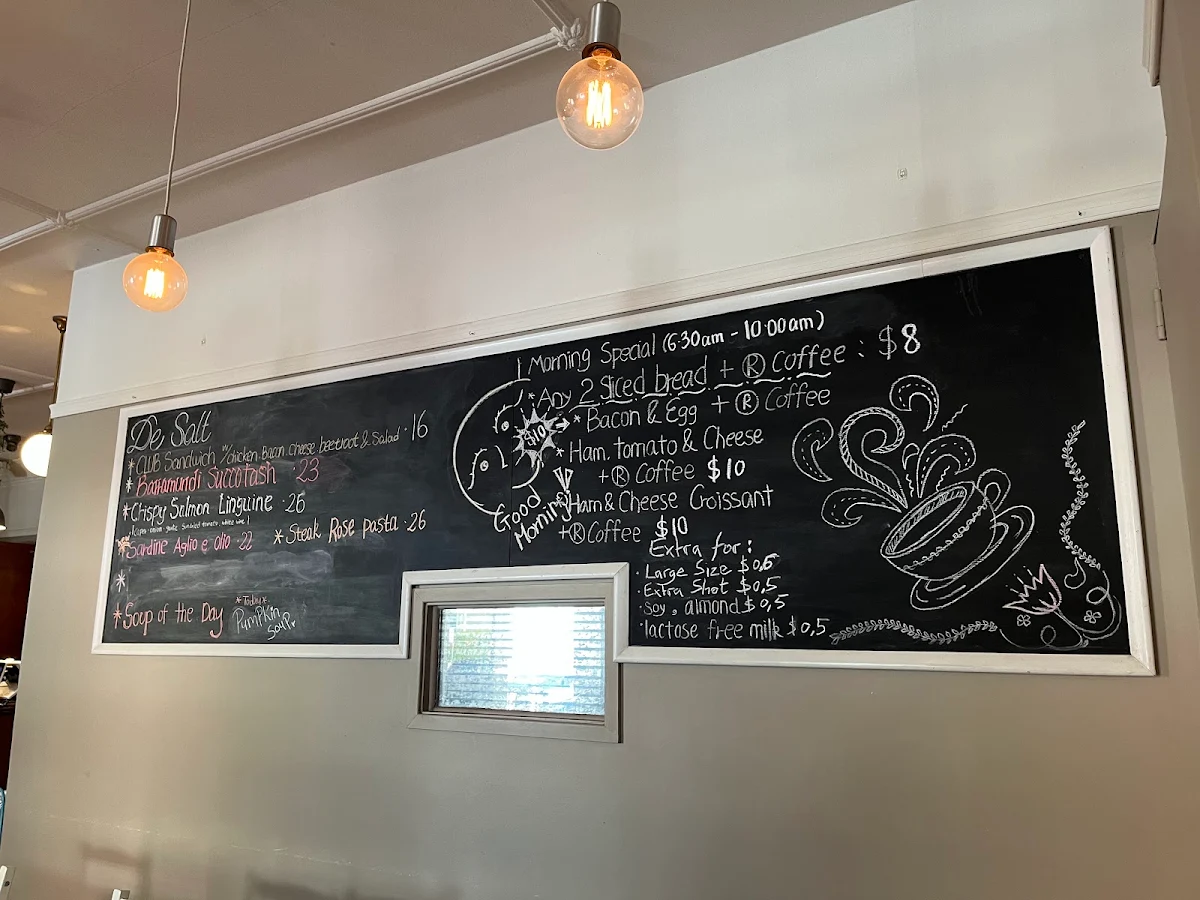 De Salt
*CLUB Sandwich w/chicken Bacon cheese beetroot & Salad · 16
*Barramundi Succotash 23
*Crispy Salmon Linguine · 26
*Sardine Aglio e olio · 22
*Steak Rose pasta · 26
*
*Soup of the Day
*Today*
Pumpkin
soup.
Good
Morning
$10
Morning Special (6:30am - 10:00am)
*Any 2 Sliced bread + ® Coffee : $8
* Bacon & Egg + ® Coffee
* Ham, tomato & Cheese
+ ® Coffee $10
Ham & Cheese Croissant
+ ® Coffee $10
Extra for :
· Large Size $0,5
· Extra Shot $0,5
· Soy, almond $0,5
· lactose free milk $0,5